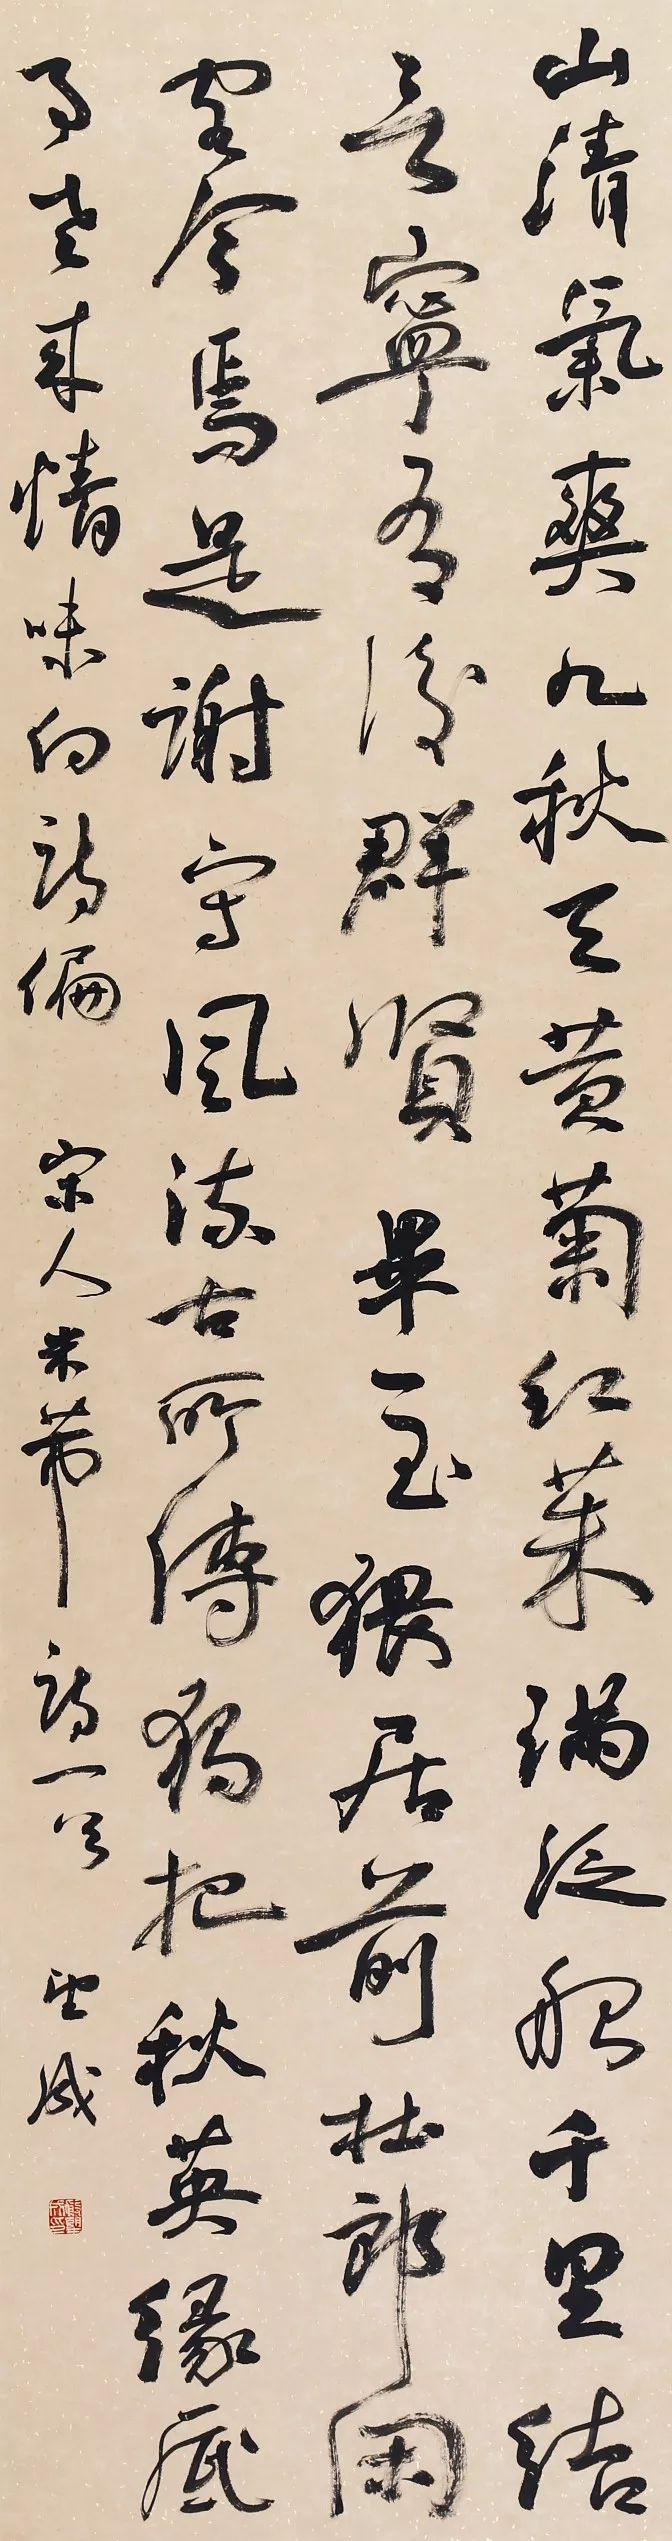 山清氣爽九秋天黄菊红茱满泛船千里结
言寧有後群賢畢至猥居前杜郎閑
客今焉是謝守風流古所傳獨把秋英緣底
事老來情味向詩偏 宋人米芾詩一首